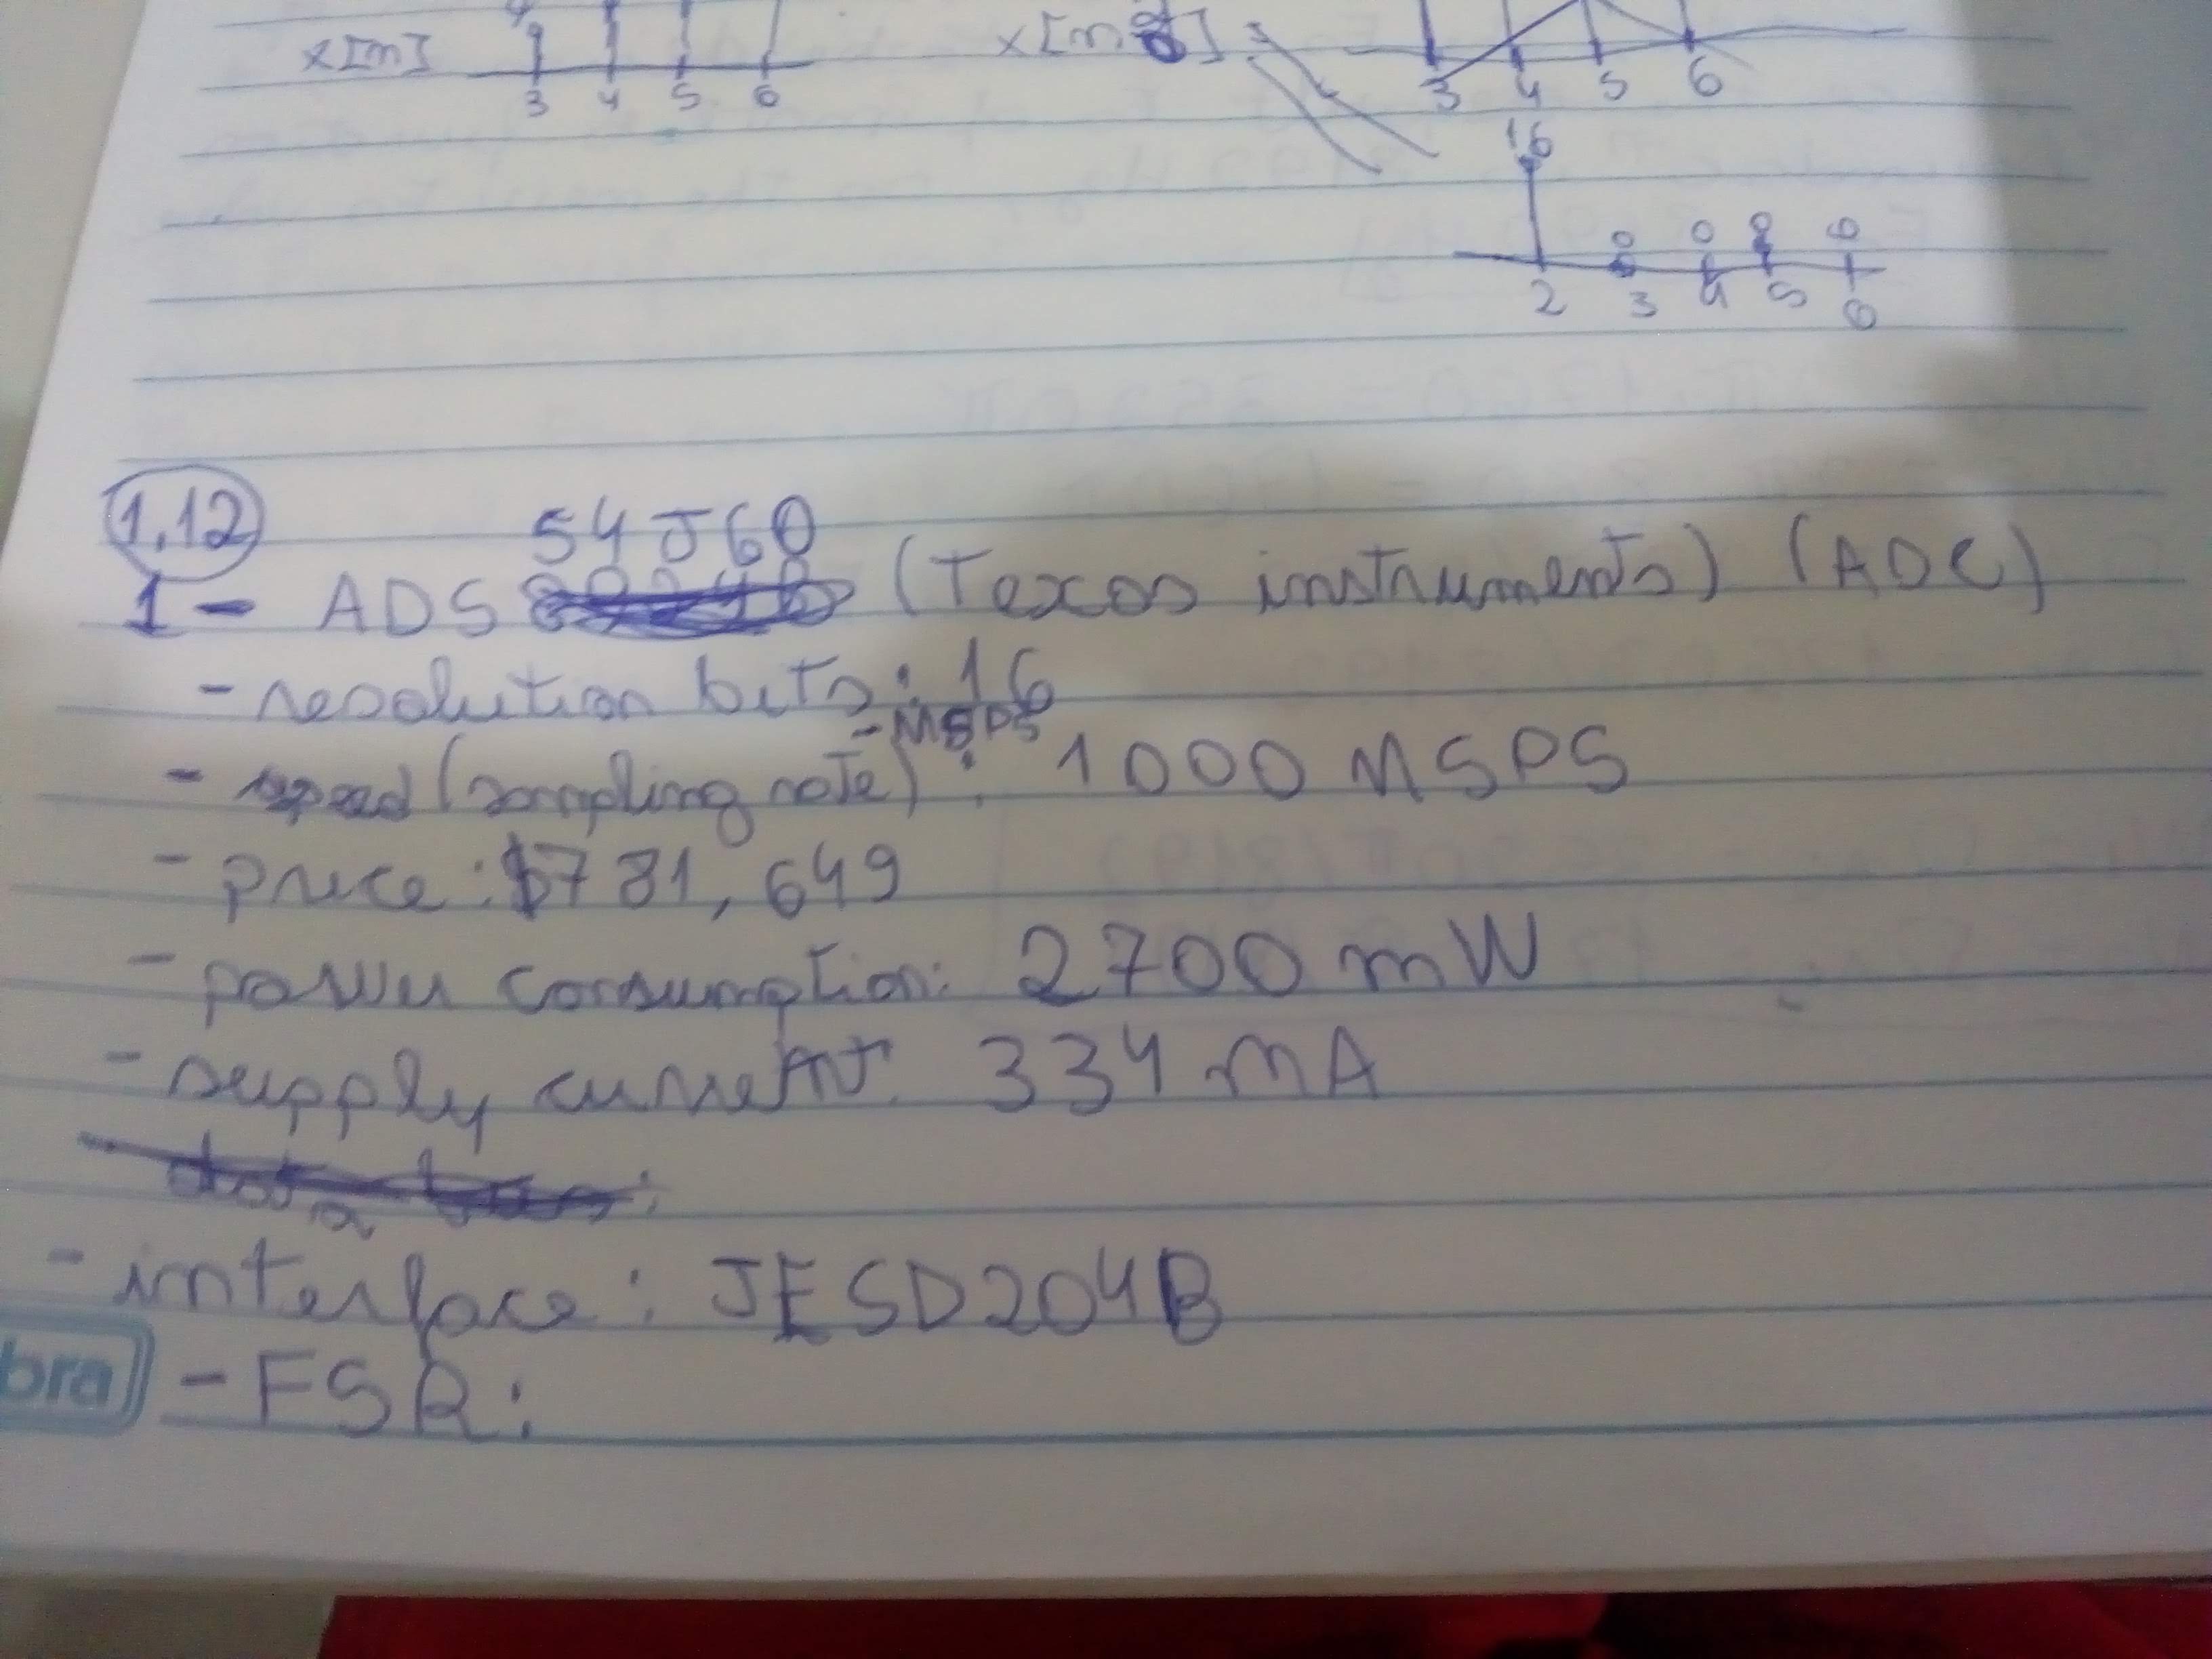 x[n]
3 4 5 6
3 4 5 6
16
0 0 0 0
2 3 4 5 6
1.12
54J60
1- ADS (Texas instruments) (ADC)
- resolution bits: 16
- MSPS
- speed (sampling rate): 1000 MSPS
- price: $781,649
- power consumption: 2700 mW
- supply current: 334 mA
- interface: JESD204B
bra
- FSR: